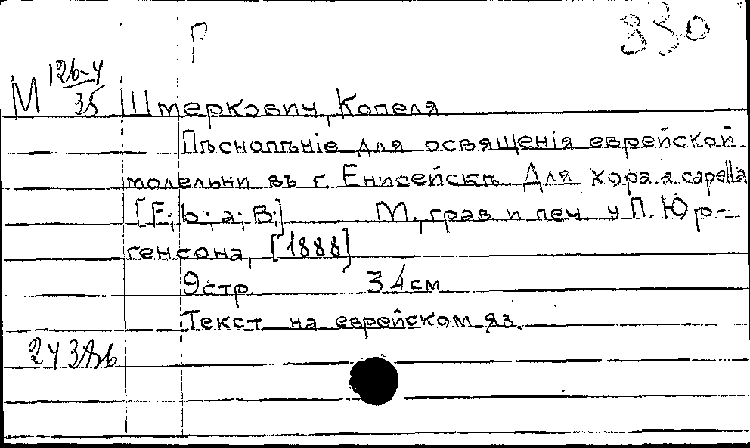 Р
330
М 126-4/35
Штеркович, Копеля
Пѣснопѣніе для освященія еврейской
молельни въ г. Енисейскѣ. Для хора a capella
[F; b; a; B;] М., грав и печ. у П. Юр-
генсона, [1888]
9 стр 34 см
Текст на еврейском яз.